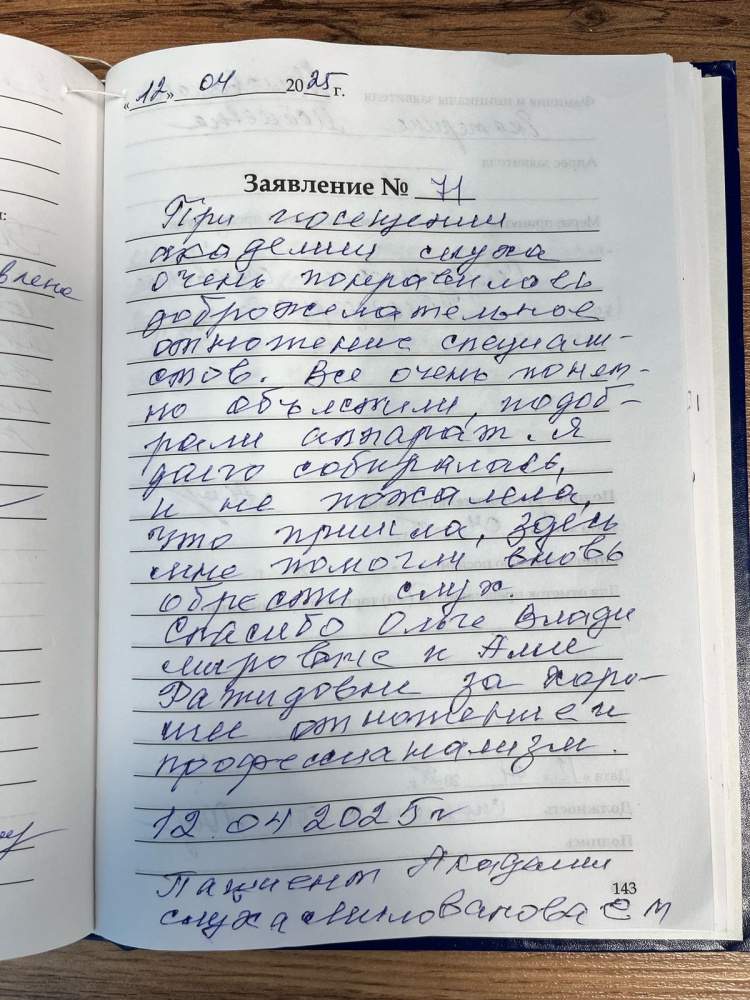 «12» 04 2025 г.
Заявление № 71
При посещении
академии слуха
очень понравилось
доброжелательное
отношение специали-
стов. Все очень понят-
но объяснили, подоб-
рали аппарат. Я
долго собиралась,
и не пожалела,
что пришла, здесь
мне помогли вновь
обрести слух.
Спасибо Ольге Влади
мировне и Алие
Рашидовне за хоро-
шее отношение и
профессианализм.
12.04 2025 г
Пациент Академии
143
слуха Милованова Е М
влена